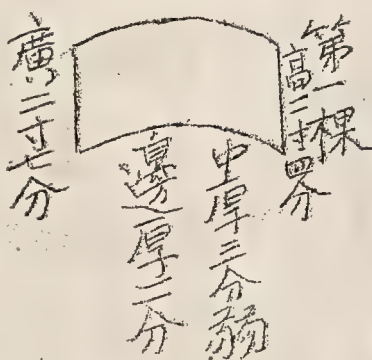 第一棵
高二寸四分
中厚三分弱
邊厚二分
廣二寸七分